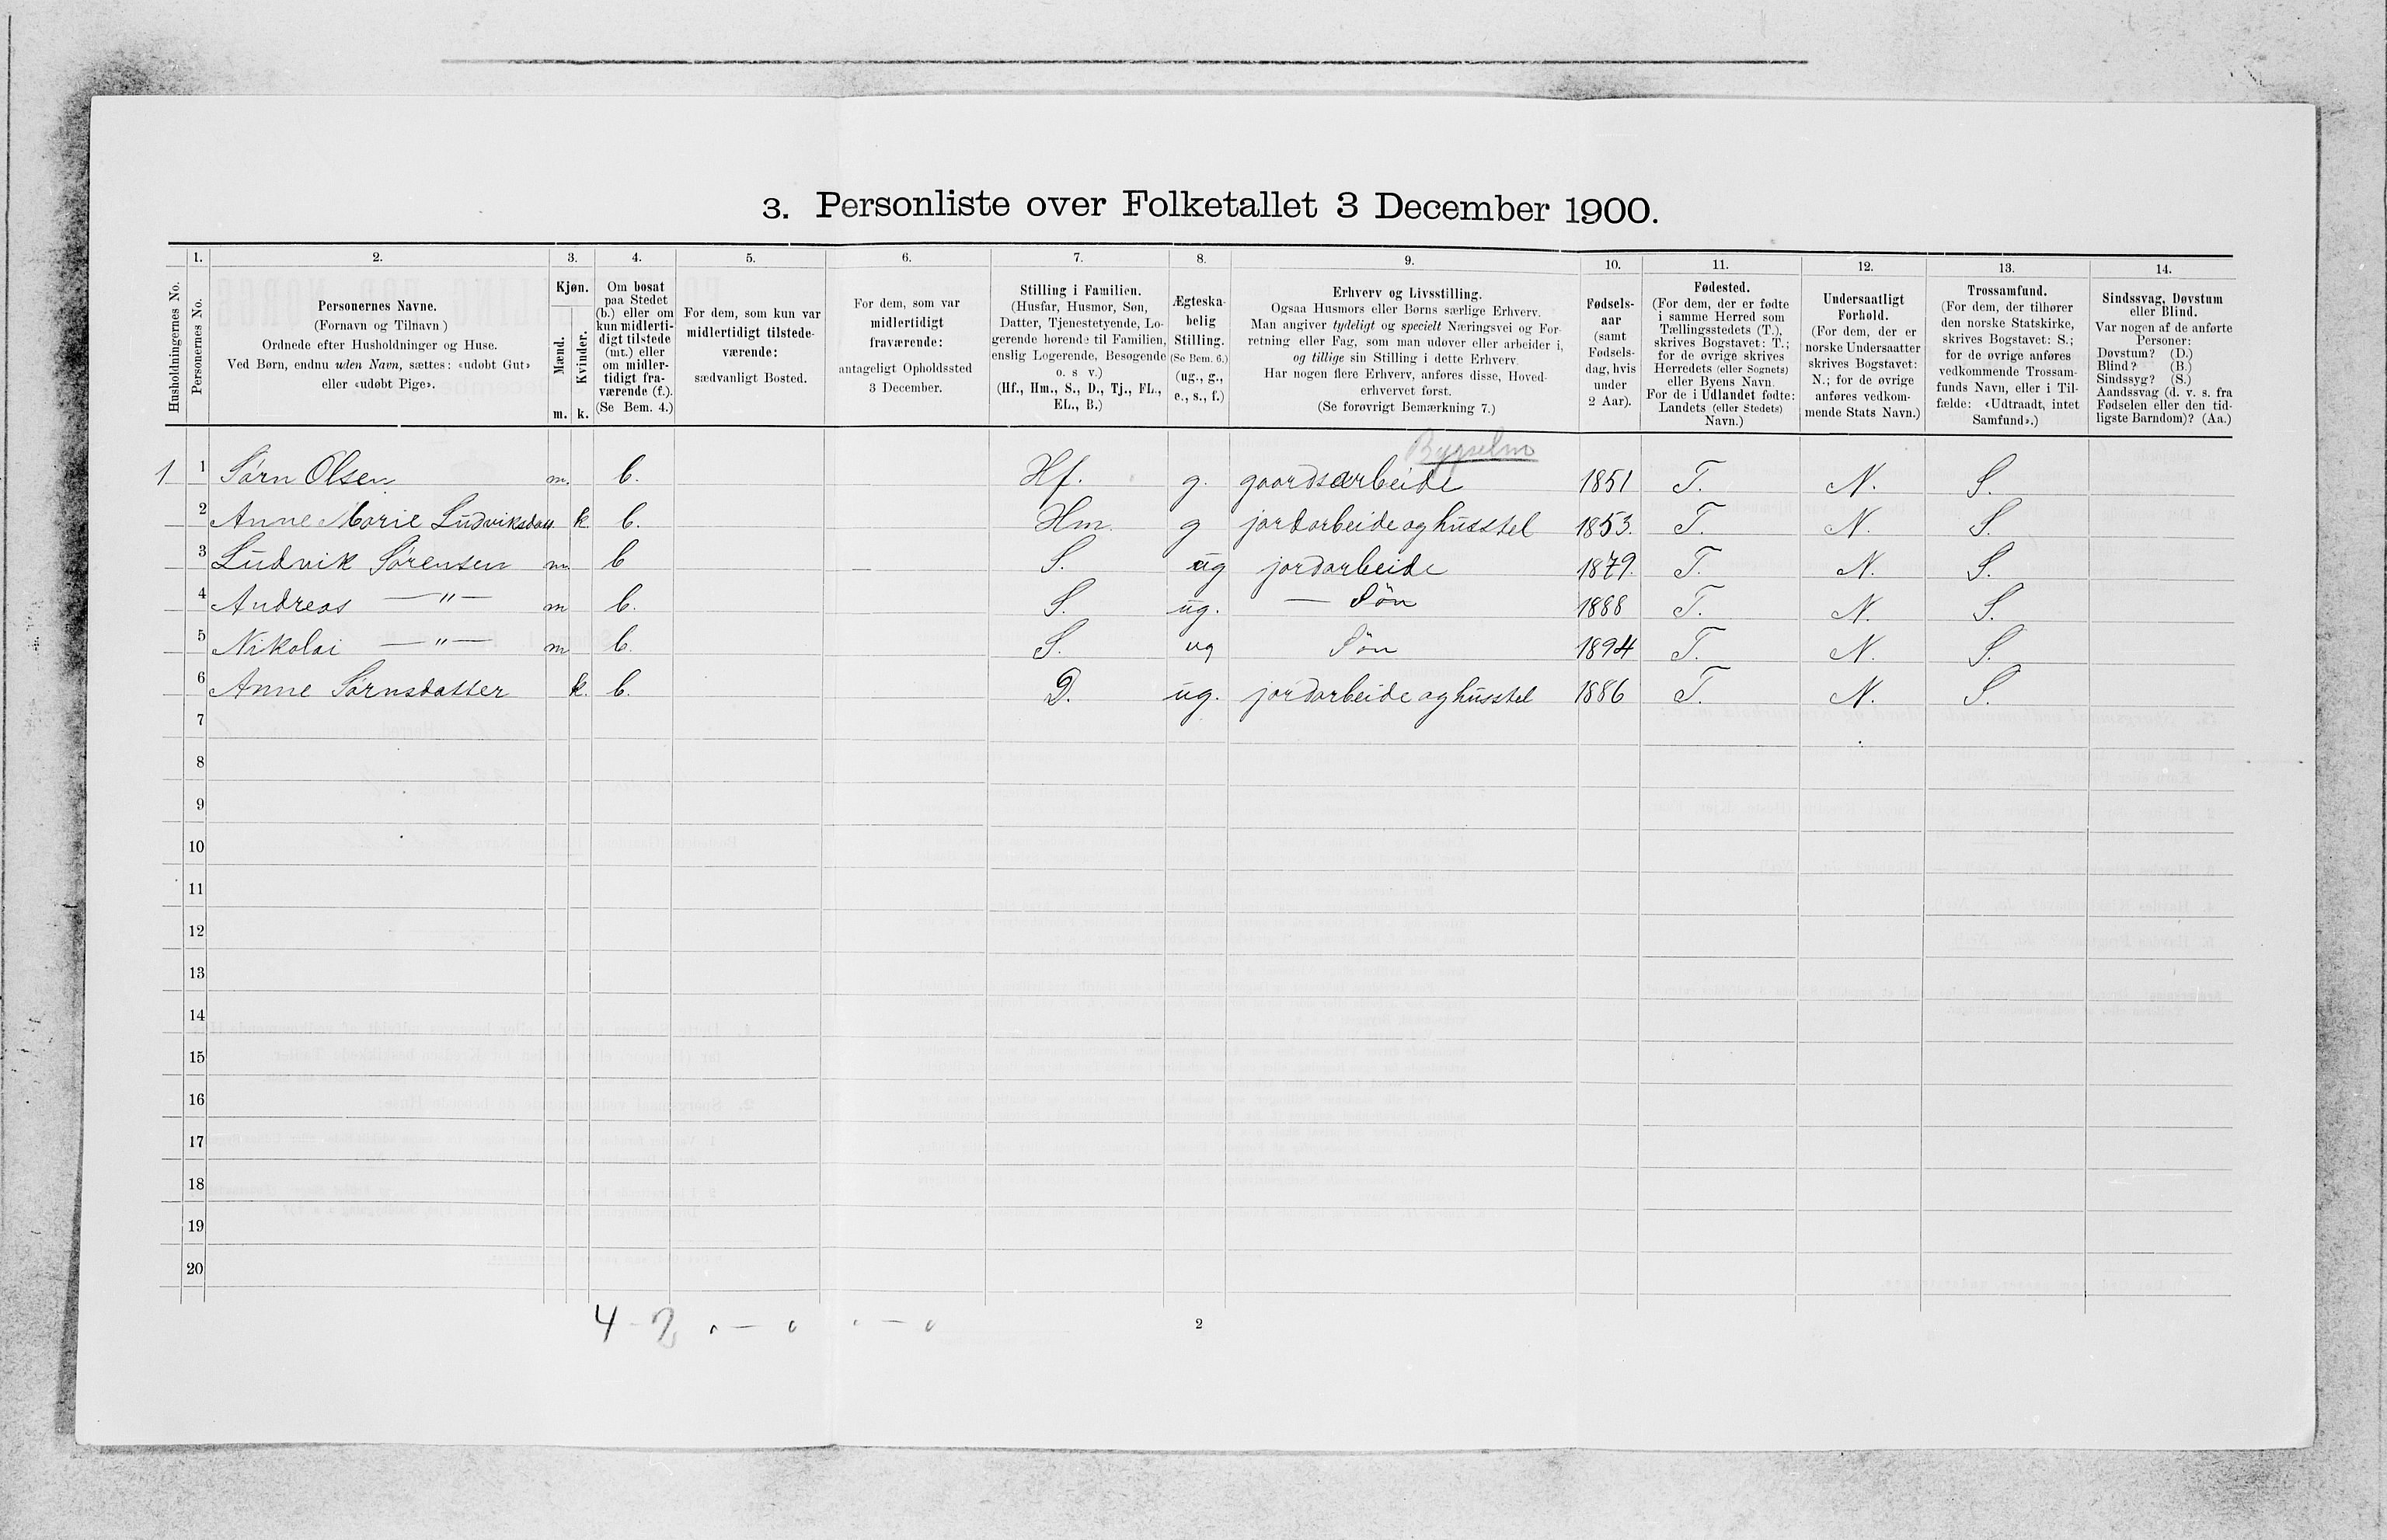 3. Personliste over Folketallet 3 December 1900.
Husholdningernes No.
1.
Personernes No.
2.
Personernes Navne.
(Fornavn og Tilnavn)
Ordnede efter Husholdninger og Huse.
Ved Børn, endnu uden Navn, sættes: «udøbt Gut»
eller «udøbt Pige».
3.
Kjøn.
Mænd.
Kvinder.
m. k.
4.
Om bosat
paa Stedet
(b.) eller om
kun midlerti-
digt tilstede
(mt.) eller
om midler-
tidigt fra-
værende (f.).
(Se Bem. 4.)
5.
For dem, som kun var
midlertidigt tilstede-
værende:
sædvanligt Bosted.
6.
For dem, som var
midlertidigt
fraværende:
antageligt Opholdssted
3 December.
7.
Stilling i Familien.
(Husfar, Husmor, Søn,
Datter, Tjenestetyende, Lo-
gerende hørende til Familien,
enslig Logerende, Besøgende
o. s v.)
(Hf., Hm., S., D., Tj., FL.,
EL., B.)
8.
Ægteska-
belig
Stilling.
(Se Bem. 6.)
(ug., g.,
e., s., f.)
9.
Erhverv og Livsstilling.
Ogsaa Husmors eller Børns særlige Erhverv.
Man angiver tydeligt og specielt Næringsvei og For-
retning eller Fag, som man udøver eller arbeider i,
og tillige sin Stilling i dette Erhverv.
Har nogen flere Erhverv, anføres disse, Hoved-
erhvervet først.
(Se forøvrigt Bemærkning 7.)
10.
Fødsels-
aar
(samt
Fødsels-
dag, hvis
under
2 Aar).
11.
Fødested.
(For dem, der er fødte
i samme Herred som
Tællingsstedets (T.),
skrives Bogstavet: T.;
for de øvrige skrives
Herredets (eller Sognets)
eller Byens Navn.
For de i Udlandet fødte:
Landets (eller Stedets)
Navn.)
12.
Undersaatligt
Forhold.
(For dem, der er
norske Undersaatter
skrives Bogstavet:
N.; for de øvrige
anføres vedkom-
mende Stats Navn.)
13.
Trossamfund.
(For dem, der tilhører
den norske Statskirke,
skrives Bogstavet: S.;
for de øvrige anføres
vedkommende Trossam-
funds Navn, eller i Til-
fælde: «Udtraadt, intet
Samfund».)
14.
Sindssvag, Døvstum
eller Blind.
Var nogen af de anførte
Personer:
Døvstum? (D.)
Blind? (B.)
Sindssyg? (S.)
Aandssvag (d. v. s. fra
Fødselen eller den tid-
ligste Barndom)? (Aa.)
Bygselm
1 1 Sørn Olsen m. b. Hf. g. gaardsarbeide 1851 T. N. S.
2 Anne Marie Ludviksdatt k b. Hm. g jordarbeide og husstel 1853. T. N. S.
3 Ludvik Sørensen m. b S. ug jordarbeide 1879. T. N. S.
4 Andreas —"— m b. S. ug. — Søn 1888 T. N. S.
5 Nikolai —"— m b. S. ug Søn 1894 T. N. S.
6 Anne Sørnsdatter k. b. D. ug. jordarbeide og husstel 1886 T. N. S.
7
8
9
10
11
12
13
14
15
16
17
18
19
20
4 - 2
2